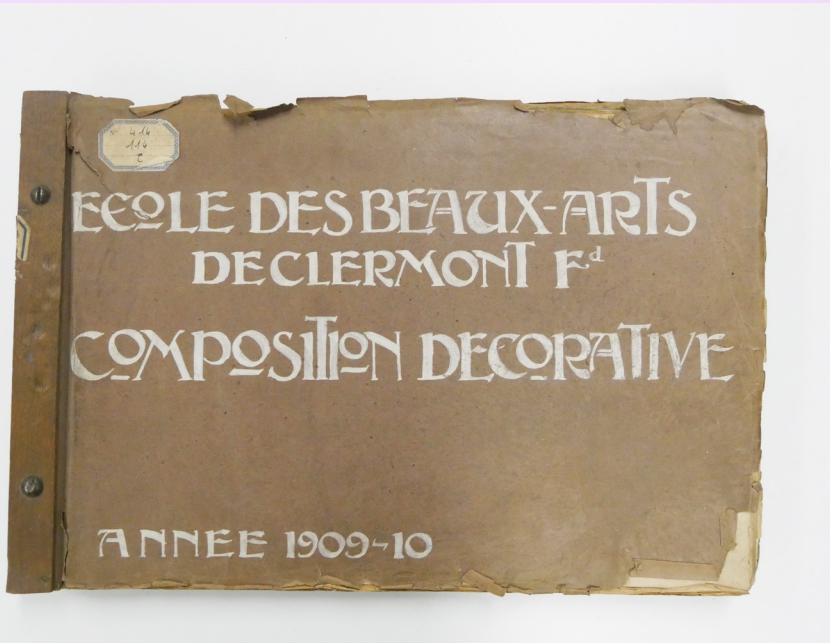 414
114
C
ECOLE DES BEAUX-ARTS
DE CLERMONT Fd
COMPOSITION DECORATIVE
ANNEE 1909-10